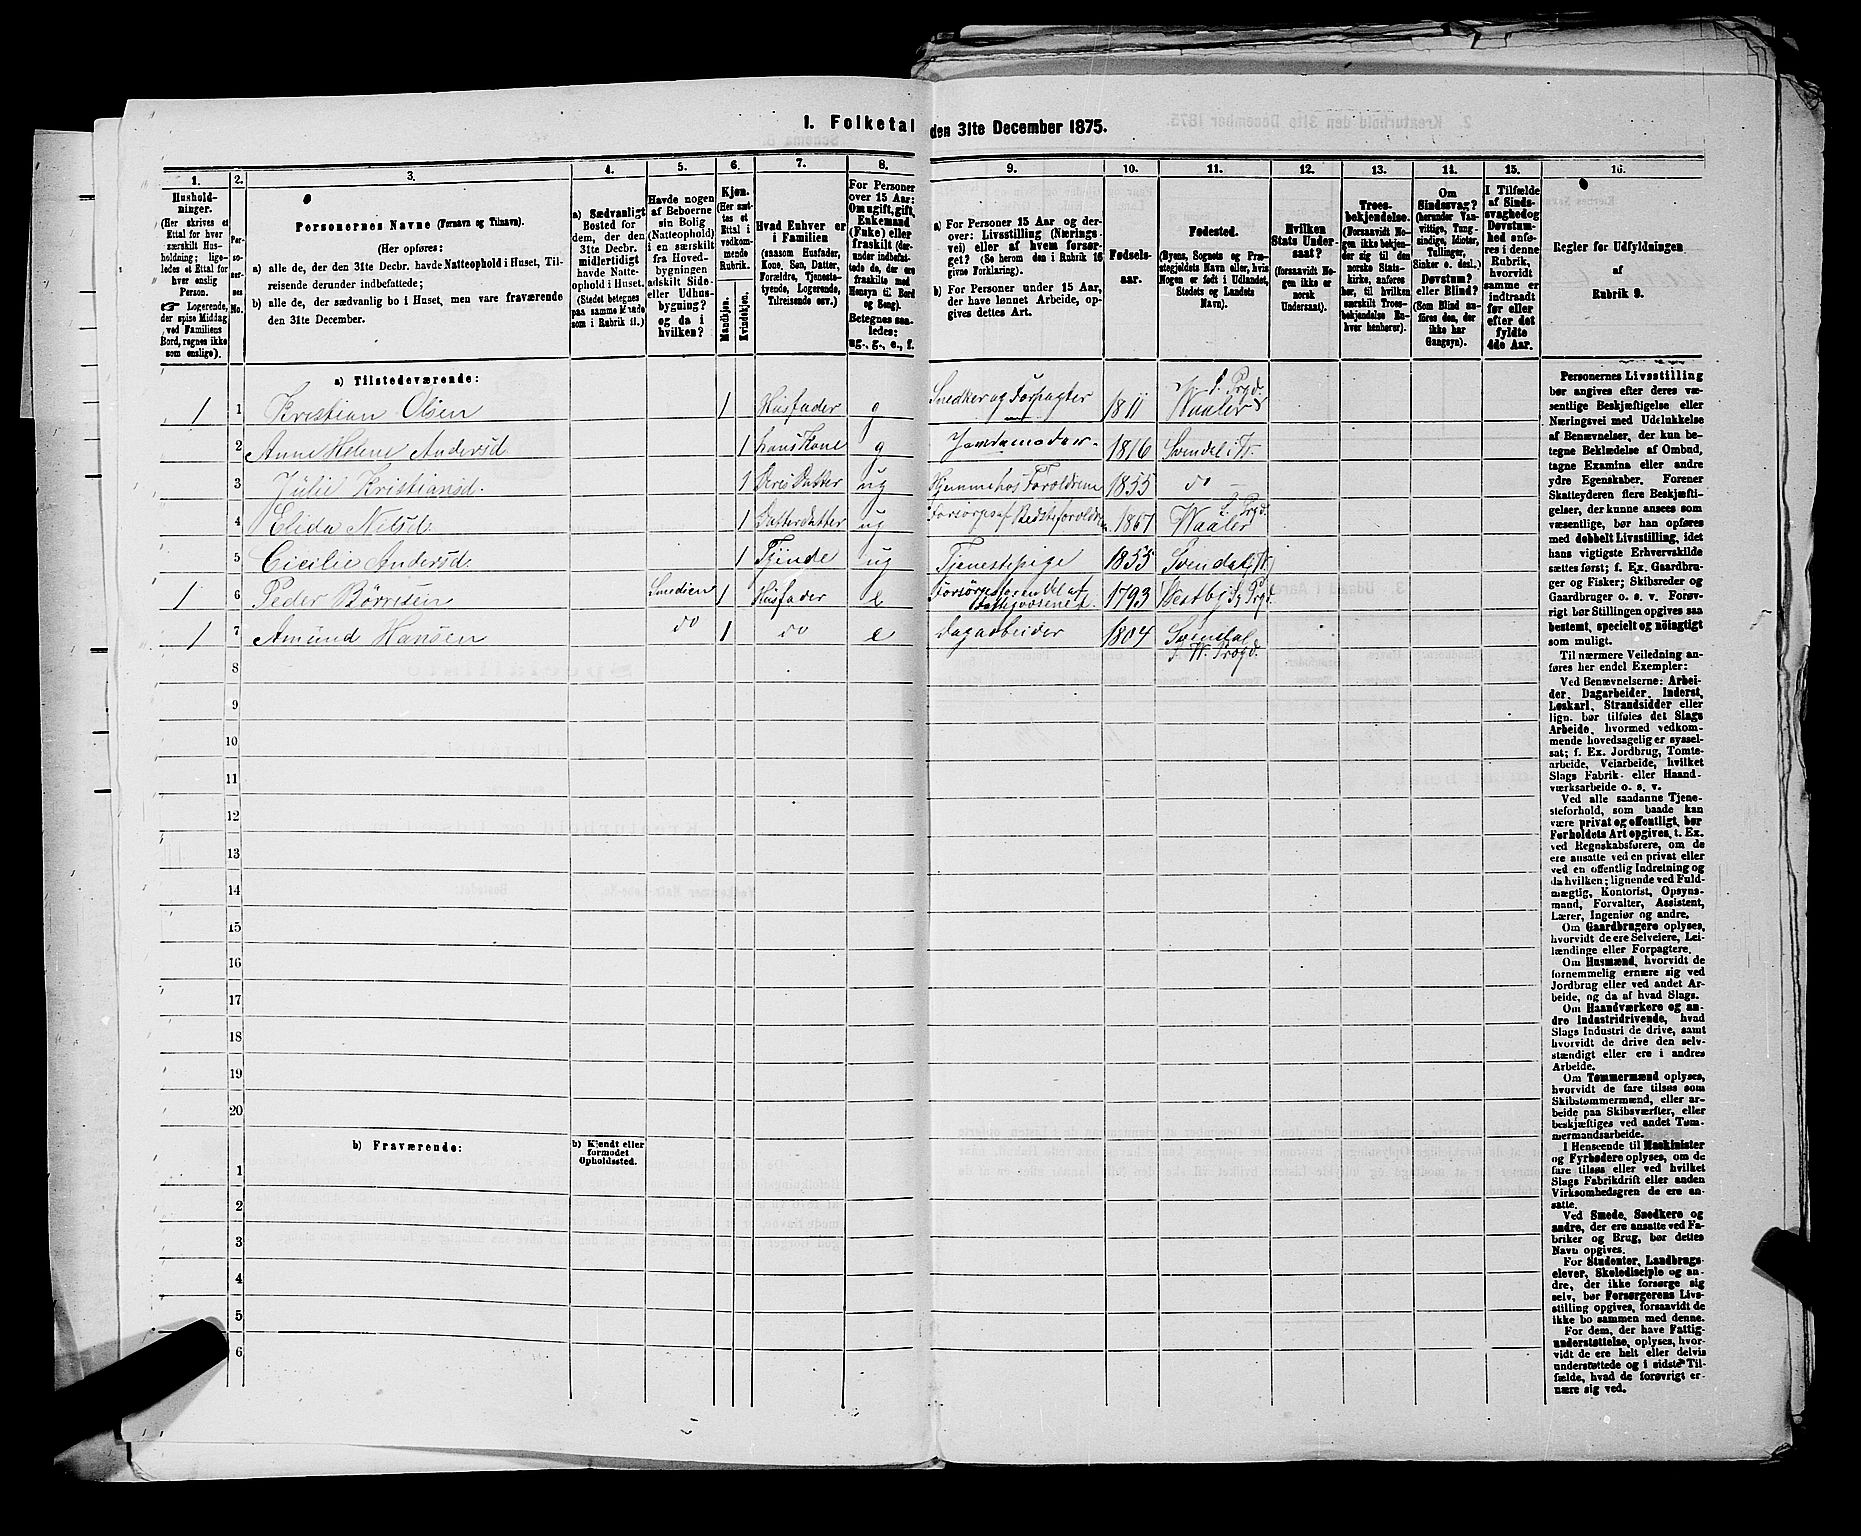 I. Folketal den 31te December 1875.
1. 2. 3. 4. 5. 6. 7. 8. 9. 10. 11. 12. 13. 14. 15. 16.
Hushold-
ninger.
(Her skrives et
Ettal for hver
særskilt Hus-
holdning; lige-
ledes et Ettal for
hver enslig
Person.
☞ Logerende,
der spise Middag
ved Familiens
Bord, regnes ikke
som enslige).
Per-
so-
ner-
nes
No.
Personernes Navne (Fornavn og Tilnavn).
(Her opføres:
a) alle de, der den 31te Decbr. havde Natteophold i Huset, Til-
reisende derunder indbefattede;
b) alle de, der sædvanlig bo i Huset, men vare fraværende
den 31te December.
a) Sædvanligt
Bosted for
dem, der den
31te Decbr.
midlertidigt
havde Natte-
ophold i Huset.
(Stedet betegnes
paa samme Maade
som i Rubrik 11.)
Havde nogen
af Beboerne
sin Bolig
(Natteophold)
i en særskilt
fra Hoved-
bygningen
adskilt Side-
eller Udhus-
bygning?
og da i
hvilken?
Kjøn.
(Her sæt-
tes et
Ettal i
vedkom-
mende
Rubrik.
Mandkjøn.
Kvindekjøn.
Hvad Enhver er
i Familien
(saasom Husfader,
Kone, Søn, Datter,
Forældre, Tjeneste-
tyende, Logerende,
Tilreisende osv.)
For Personer
over 15 Aar:
Om ugift, gift,
Enkemand
(Enke) eller
fraskilt (der-
under indbefat-
tede de, der ere
fraskilte med
Hensyn til Bord
og Seng).
Betegnes saa-
ledes:
ug., g., e., f.
a) For Personer 15 Aar og der-
over: Livsstilling (Nærings-
vei) eller af hvem forsør-
get? (Se herom den i Rubrik 16
givne Forklaring).
b) For Personer under 15 Aar,
der have lønnet Arbeide, op-
gives dettes Art.
Fødsels-
aar.
Fødested.
(Byens, Sognets og Præ-
stegjeldets Navn eller, hvis
Nogen er født i Udlandet,
Stedets og Landets
Navn).
Hvilken
Stats Under-
saat?
(forsaavidt No-
gen ikke er
norsk
Undersaat).
Troes-
bekjendelse.
(Forsaavidt No-
gen ikke bekjen-
der sig til den
norske Stats-
kirke, anføres
her, til hvilken
særskilt Troes-
bekjendelse En-
hver henhører).
Om
Sindssvag?
(herunder Van-
vittige, Tung-
sindige, Idioter,
Tullinger,
Sinker o. desl.)
Døvstum?
eller Blind?
(Som Blind an-
føres den, der
ikke har
Gangsyn).
I Tilfælde
af Sinds-
svaghed og
Døvstum-
hed anfø-
res i denne
Rubrik,
hvorvidt
samme er
indtraadt
før eller
efter det
fyldte
4de Aar.
Regler for Udfyldningen
af
Rubrik 9.
a) Tilstedeværende:
1 1 Kristian Olsen 1 Husfader g Snedker og Forpagter 1811 Waaler
2 Anne Helene Andersd 1 hans Kone g Jordemoder 1816 Svendal i W.
3 Julie Kristiansd. 1 Deres Datter ug Hjemme hos Foroldrene 1855 do
4 Elida Nilsd. 1 Datterdatter ug Forsørges af Bedsteforoldre 1867 Waaler
5 Cicilie Andersd. 1 Tjende ug Tjenestepige 1855 Svendal
1 6 Peder Börresen Smedien 1 Husfader e Forsørges foren Del af Fattigvæsenet 1793 Vestby
1 7 Amund Hansen do 1 do e Dagarbeider 1804 Svendal
i W. Prgd.
8
9
10
11
12
13
14
15
16
17
18
19
20
b) Fraværende:
b) Kjendt eller
formodet
Opholdssted.
1
2
3
4
5
6
Personernes Livsstilling
bør angives efter deres væ-
sentlige Beskjæftigelse eller
Næringsvei med Udelukkelse
af Benævnelser, der kun be-
tegne Beklædelse af Ombud,
tagne Examina eller andre
ydre Egenskaber. Forener
Skatteyderen flere Beskjæfti-
gelser, der kunne ansees som
væsentlige, bør han opføres
med dobbelt Livsstilling, idet
hans vigtigste Erhvervskilde
sættes først; f. Ex. Gaardbru-
ger og Fisker; Skibsreder og
Gaardbruger o. s. v. Forøv-
rigt bør Stillingen opgives saa
bestemt, specielt og nøiagtigt
som muligt.
Til nærmere Veiledning an-
føres her endel Exempler:
Ved Benævnelserne: Arbei-
der, Dagarbeider, Inderst,
Løskarl, Strandsidder eller
lign. bør tilføies det Slags
Arbeide, hvormed vedkom-
mende hovedsagelig er syssel-
sat; f. Ex. Jordbrug, Tomte-
arbeide, Veiarbeide, hvilket
Slags Fabrik- eller Haand-
værksarbeide o. s. v.
Ved alle saadanne Tjene-
steforhold, som baade kan
være privat og offentligt, bør
Forholdets Art opgives, t. Ex.
ved Regnskabsførere, om de
ere ansatte ved en privat eller
ved en offentlig Indretning og
da hvilken; lignende ved Fuld-
mægtig, Kontorist, Opsyns-
mand, Forvalter, Assistent,
Lærer, Ingeniør og andre.
Om Gaardbrugere oplyses,
hvorvidt de ere Selveiere, Lei-
lændinge eller Forpagtere.
Om Husmænd, hvorvidt de
fornemmelig ernære sig ved
Jordbrug eller ved andet Ar-
beide, og da af hvad Slags.
Om Haandværkere og an-
dre Industridrivende, hvad
Slags Industri de drive, samt
hvorvidt de drive den selv-
stændigt eller ere i andres
Arbeide.
Om Tømmermænd oplyses,
hvorvidt de fare tilsøs som
Skibstømmermænd, eller ar-
beide paa Skibsværfter, eller
beskjæftiges ved andet Tøm-
mermandsarbeide.
I Henseende til Maskinister
og Fyrbødere oplyses, om de
fare tilsøs eller ved hvilket
Slags Fabrikdrift eller anden
Virksomhedsgren de ere an-
satte.
Ved Smede, Snedkere og
andre, der ere ansatte ved Fa-
briker og Brug, bør dettes
Navn opgives.
For Studenter, Landbrugs-
elever, Skoledisciple og an-
dre, der ikke forsørge sig
selv, bør Forsørgerens Livs-
stilling opgives, forsaavidt de
ikke bo sammen med denne.
For dem, der have Fattig-
understøttelse, oplyses, hvor-
vidt de ere helt eller delvis
understøttede og i sidste Til-
fælde, hvad de forøvrigt er-
nære sig ved.